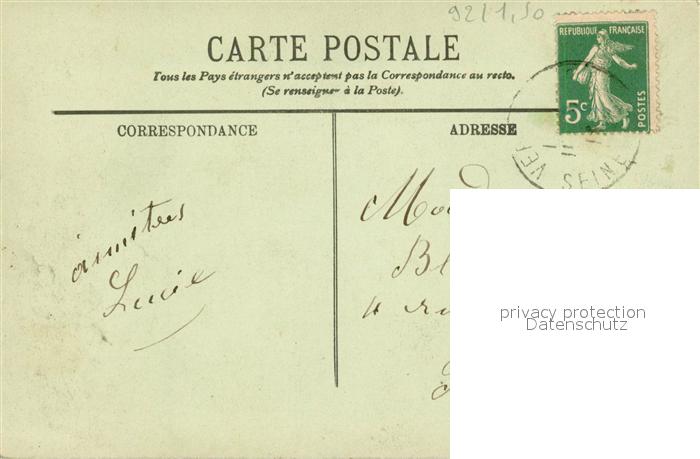 92/1,50
CARTE POSTALE
Tous les Pays étrangers n'acceptent pas la Correspondance au recto.
(Se renseigner à la Poste).
REPUBLIQUE FRANÇAISE
5c
POSTES
SEINE
CORRESPONDANCE
ADRESSE
amitées
Lucie
4
privacy protection
Datenschutz